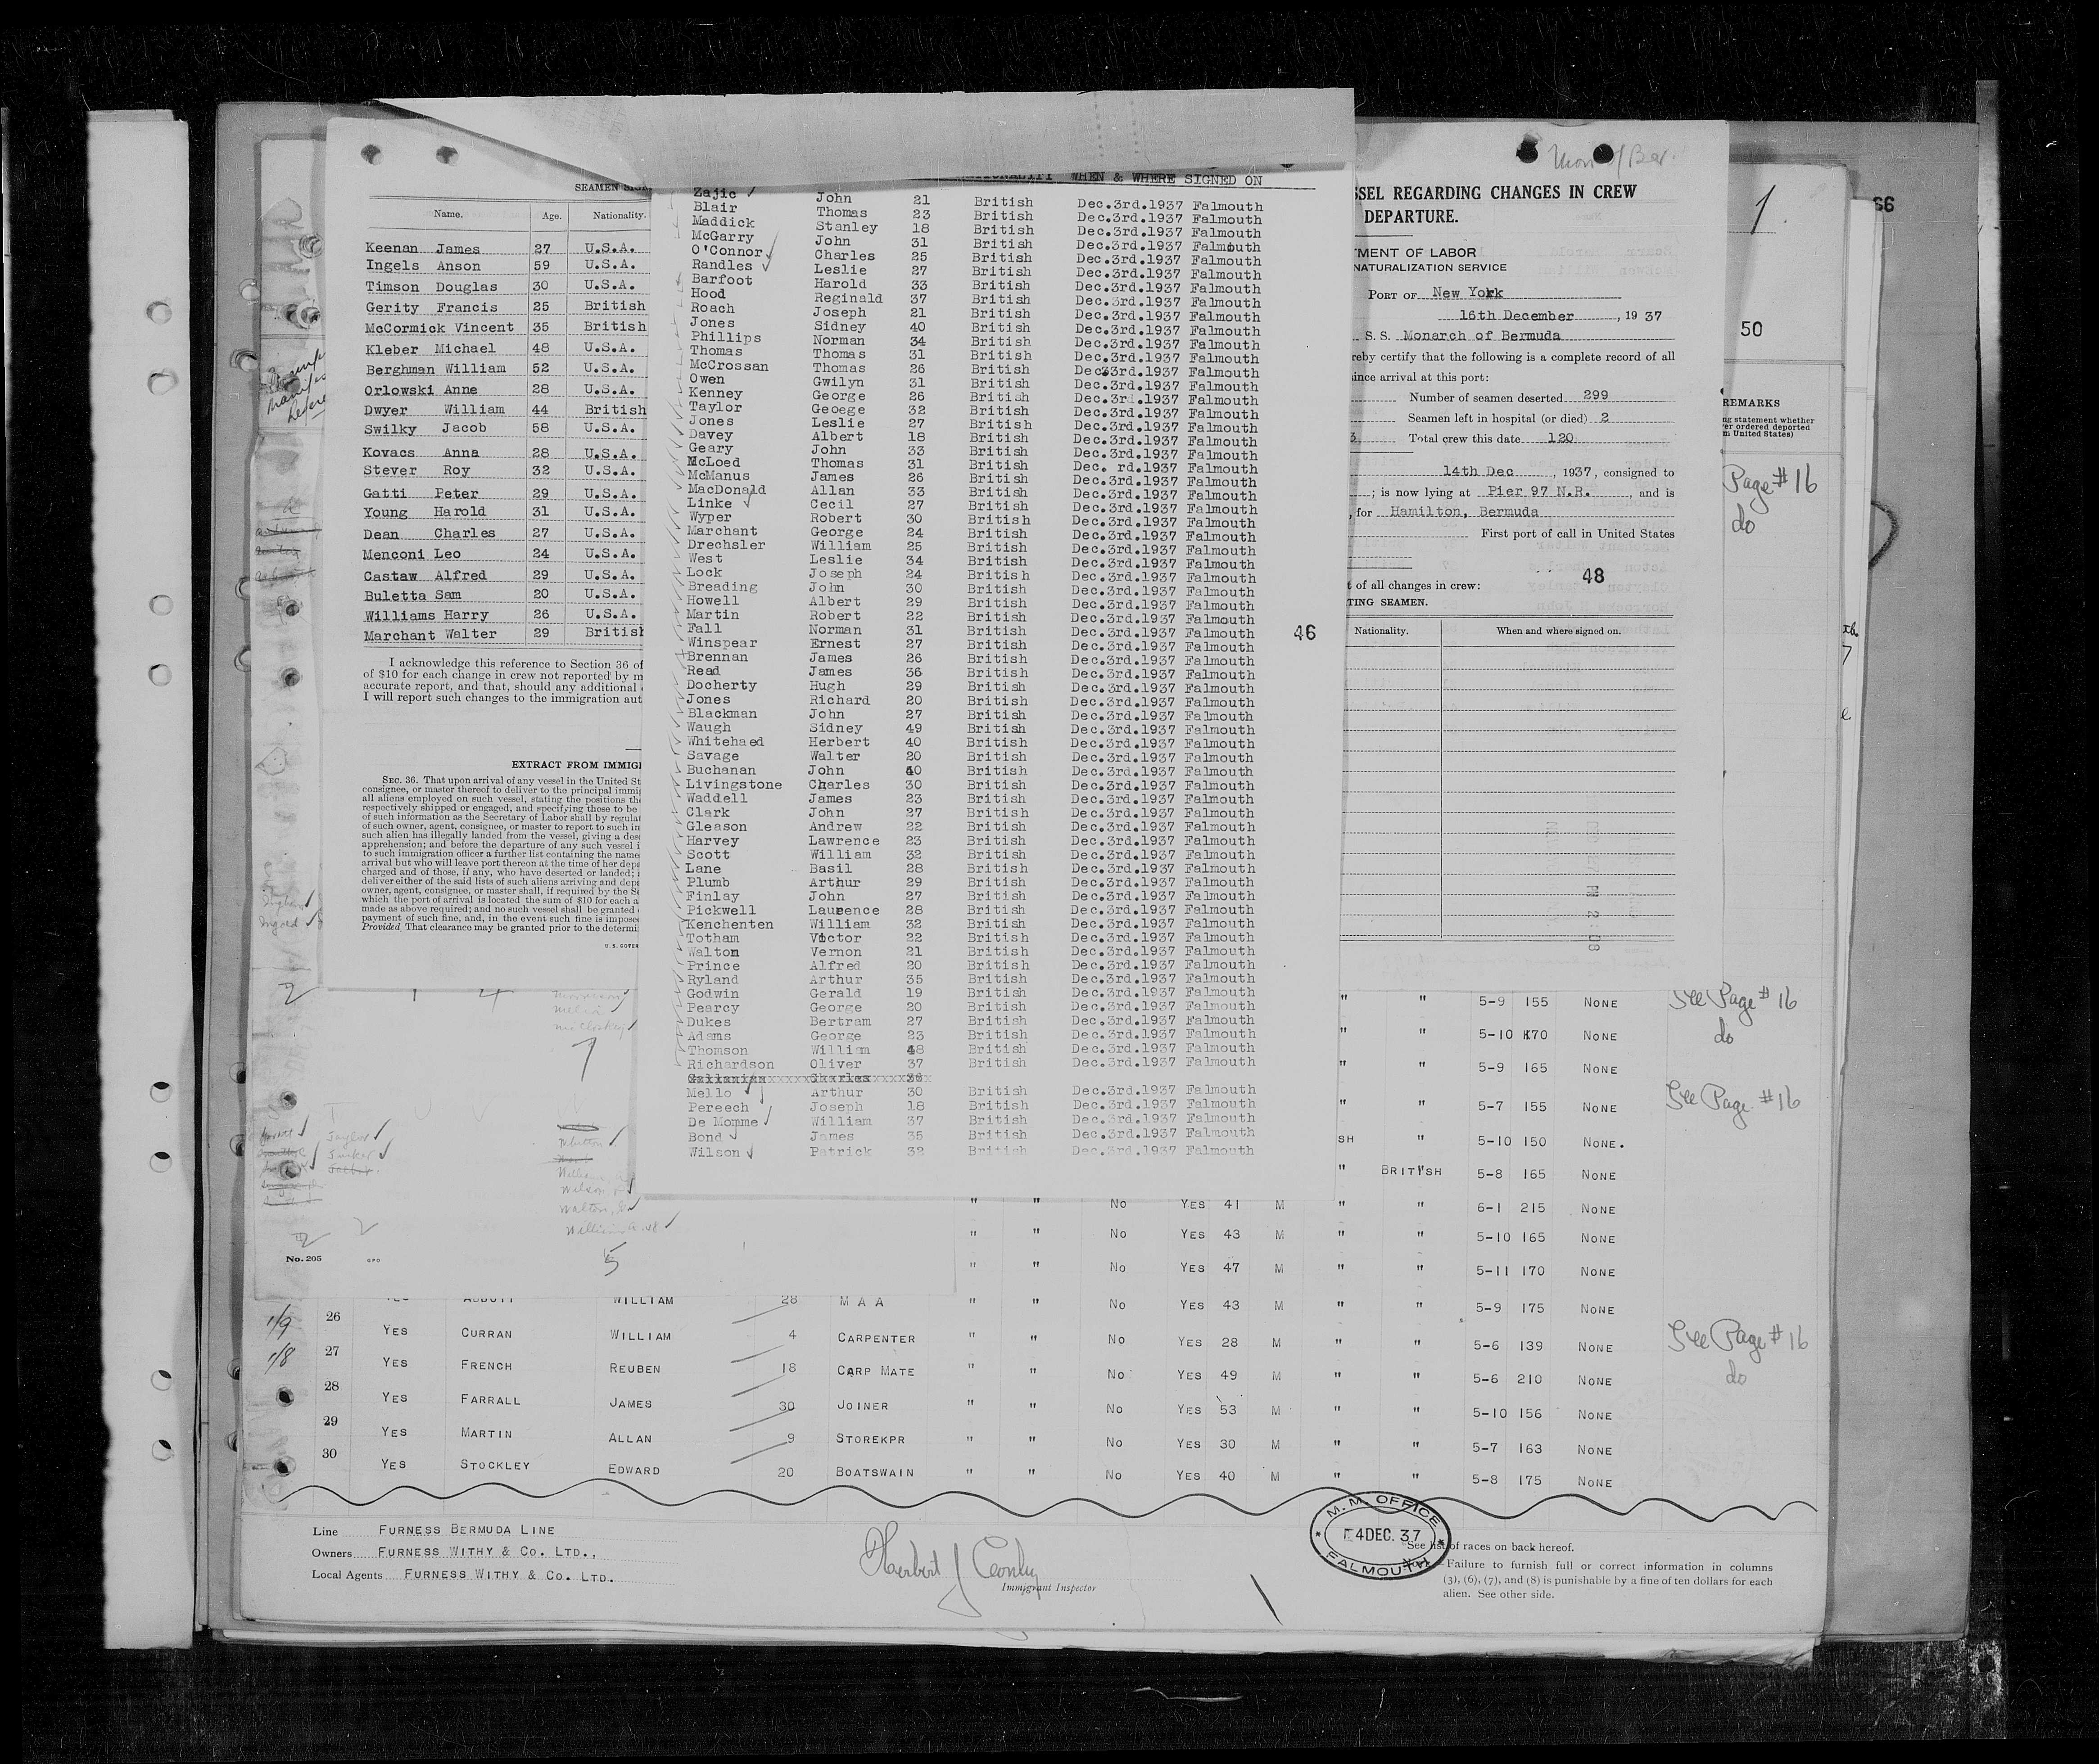 SEAMEN
Name. Age. Nationality.
Keenan James 27 U.S.A.
Ingels Anson 59 U.S.A.
Timson Douglas 30 U.S.A.
Gerity Francis 25 British
McCormick Vincent 35 British
Kleber Michael 48 U.S.A.
Berghman William 52 U.S.A.
Orlowski Anne 28 U.S.A.
Dwyer William 44 British
Swilky Jacob 58 U.S.A.
Kovacs Anna 28 U.S.A.
Stever Roy 32 U.S.A.
Gatti Peter 29 U.S.A.
Young Harold 31 U.S.A.
Dean Charles 27 U.S.A.
Menconi Leo 24 U.S.A.
Castaw Alfred 29 U.S.A.
Buletta Sam 20 U.S.A.
Williams Harry 26 U.S.A.
Marchant Walter 29 British
I acknowledge this reference to Section 36 of
of $10 for each change in crew not reported by m
accurate report, and that, should any additional
I will report such changes to the immigration aut
EXTRACT FROM IMMIG
SEC. 36. That upon arrival of any vessel in the United St
consignee, or master thereof to deliver to the principal immig
all aliens employed on such vessel, stating the positions the
respectively shipped or engaged, and specifying those to be
of such information as the Secretary of Labor shall by regulat
of such owner, agent, consignee, or master to report to such im
such alien has illegally landed from the vessel, giving a des
apprehension; and before the departure of any such vessel i
to such immigration officer a further list containing the name
arrival but who will leave port thereon at the time of her depa
charged and of those, if any, who have deserted or landed;
deliver either of the said lists of such aliens arriving and depa
owner, agent, consignee, or master shall, if required by the Se
which the port of arrival is located the sum of $10 for each a
made as above required; and no such vessel shall be granted
payment of such fine, and, in the event such fine is impose
Provided, That clearance may be granted prior to the determi
WHEN & WHERE SIGNED ON
Zajic John 21 British Dec.3rd.1937 Falmouth
Blair Thomas 23 British Dec.3rd.1937 Falmouth
Maddick Stanley 18 British Dec.3rd.1937 Falmouth
McGarry John 31 British Dec.3rd.1937 Falmouth
O'Connor Charles 25 British Dec.3rd.1937 Falmouth
Randles Leslie 27 British Dec.3rd.1937 Falmouth
Barfoot Harold 33 British Dec.3rd.1937 Falmouth
Hood Reginald 37 British Dec.3rd.1937 Falmouth
Roach Joseph 21 British Dec.3rd.1937 Falmouth
Jones Sidney 40 British Dec.3rd.1937 Falmouth
Phillips Norman 34 British Dec.3rd.1937 Falmouth
Thomas Thomas 31 British Dec.3rd.1937 Falmouth
McCrossan Thomas 26 British Dec.3rd.1937 Falmouth
Owen Gwilyn 31 British Dec.3rd.1937 Falmouth
Kenney George 26 British Dec.3rd.1937 Falmouth
Taylor Geoege 32 British Dec.3rd.1937 Falmouth
Jones Leslie 27 British Dec.3rd.1937 Falmouth
Davey Albert 18 British Dec.3rd.1937 Falmouth
Geary John 33 British Dec.3rd.1937 Falmouth
McLoed Thomas 31 British Dec. rd.1937 Falmouth
McManus James 26 British Dec.3rd.1937 Falmouth
MacDonald Allan 33 British Dec.3rd.1937 Falmouth
Linke Cecil 27 British Dec.3rd.1937 Falmouth
Wyper Robert 30 British Dec.3rd.1937 Falmouth
Marchant George 24 British Dec.3rd.1937 Falmouth
Drechsler William 25 British Dec.3rd.1937 Falmouth
West Leslie 34 British Dec.3rd.1937 Falmouth
Lock Joseph 24 British Dec.3rd.1937 Falmouth
Breading John 30 British Dec.3rd.1937 Falmouth
Howell Albert 29 British Dec.3rd.1937 Falmouth
Martin Robert 22 British Dec.3rd.1937 Falmouth
Fall Norman 31 British Dec.3rd.1937 Falmouth
Winspear Ernest 27 British Dec.3rd.1937 Falmouth
Brennan James 26 British Dec.3rd.1937 Falmouth
Read James 36 British Dec.3rd.1937 Falmouth
Docherty Hugh 29 British Dec.3rd.1937 Falmouth
Jones Richard 20 British Dec.3rd.1937 Falmouth
Blackman John 27 British Dec.3rd.1937 Falmouth
Waugh Sidney 49 British Dec.3rd.1937 Falmouth
Whitehaed Herbert 40 British Dec.3rd.1937 Falmouth
Savage Walter 20 British Dec.3rd.1937 Falmouth
Buchanan John 40 British Dec.3rd.1937 Falmouth
Livingstone Charles 30 British Dec.3rd.1937 Falmouth
Waddell James 23 British Dec.3rd.1937 Falmouth
Clark John 27 British Dec.3rd.1937 Falmouth
Gleason Andrew 22 British Dec.3rd.1937 Falmouth
Harvey Lawrence 23 British Dec.3rd.1937 Falmouth
Scott William 32 British Dec.3rd.1937 Falmouth
Lane Basil 28 British Dec.3rd.1937 Falmouth
Plumb Arthur 29 British Dec.3rd.1937 Falmouth
Finlay John 27 British Dec.3rd.1937 Falmouth
Pickwell Laurence 28 British Dec.3rd.1937 Falmouth
Kenchenten William 32 British Dec.3rd.1937 Falmouth
Totham Victor 22 British Dec.3rd.1937 Falmouth
Walton Vernon 21 British Dec.3rd.1937 Falmouth
Prince Alfred 20 British Dec.3rd.1937 Falmouth
Ryland Arthur 35 British Dec.3rd.1937 Falmouth
Godwin Gerald 19 British Dec.3rd.1937 Falmouth
Pearcy George 20 British Dec.3rd.1937 Falmouth
Dukes Bertram 27 British Dec.3rd.1937 Falmouth
Adams George 23 British Dec.3rd.1937 Falmouth
Thomson William 48 British Dec.3rd.1937 Falmouth
Richardson Oliver 37 British Dec.3rd.1937 Falmouth
Mello Arthur 30 British Dec.3rd.1937 Falmouth
Pereech Joseph 18 British Dec.3rd.1937 Falmouth
De Momme William 37 British Dec.3rd.1937 Falmouth
Bond James 35 British Dec.3rd.1937 Falmouth
Wilson Patrick 32 British Dec.3rd.1937 Falmouth
46
SSEL REGARDING CHANGES IN CREW
DEPARTURE.
TMENT OF LABOR
NATURALIZATION SERVICE
PORT OF New York
16th December, 1937
S. S. Monarch of Bermuda
reby certify that the following is a complete record of all
ince arrival at this port:
Number of seamen deserted 299
Seamen left in hospital (or died) 2
Total crew this date 120
14th Dec, 1937, consigned to
; is now lying at Pier 97 N.R., and is
, for Hamilton, Bermuda
First port of call in United States
48
t of all changes in crew:
TING SEAMEN.
Nationality. When and where signed on.
1.
66
50
REMARKS
ng statement whether
er ordered deported
m United States)
Page # 16
do
" " 5-9 155 NONE See Page # 16
" " 5-10 170 NONE do
" " 5-9 165 NONE
" " 5-7 155 NONE See Page # 16
SH " 5-10 150 NONE.
" BRITISH 5-8 165 NONE
" " No YES 41 M " " 6-1 215 NONE
" " No YES 43 M " " 5-10 165 NONE
" " No YES 47 M " " 5-11 170 NONE
No. 205
GPO
26 ABBOTT WILLIAM 28 M A A " " No YES 43 M " " 5-9 175 NONE
YES CURRAN WILLIAM 4 CARPENTER " " No YES 28 M " " 5-6 139 NONE See Page # 16
27 YES FRENCH REUBEN 18 CARP MATE " " No YES 49 M " " 5-6 210 NONE do
28 YES FARRALL JAMES 30 JOINER " " No YES 53 M " " 5-10 156 NONE
29 YES MARTIN ALLAN 9 STOREKPR " " No YES 30 M " " 5-7 163 NONE
30 YES STOCKLEY EDWARD 20 BOATSWAIN " " No YES 40 M " " 5-8 175 NONE
Line FURNESS BERMUDA LINE
Owners FURNESS WITHY & CO. LTD.,
Local Agents FURNESS WITHY & CO. LTD.
Immigrant Inspector
M. M. OFFICE
4 DEC. 37
FALMOUTH
See list of races on back hereof.
Failure to furnish full or correct information in columns
(3), (6), (7), and (8) is punishable by a fine of ten dollars for each
alien. See other side.